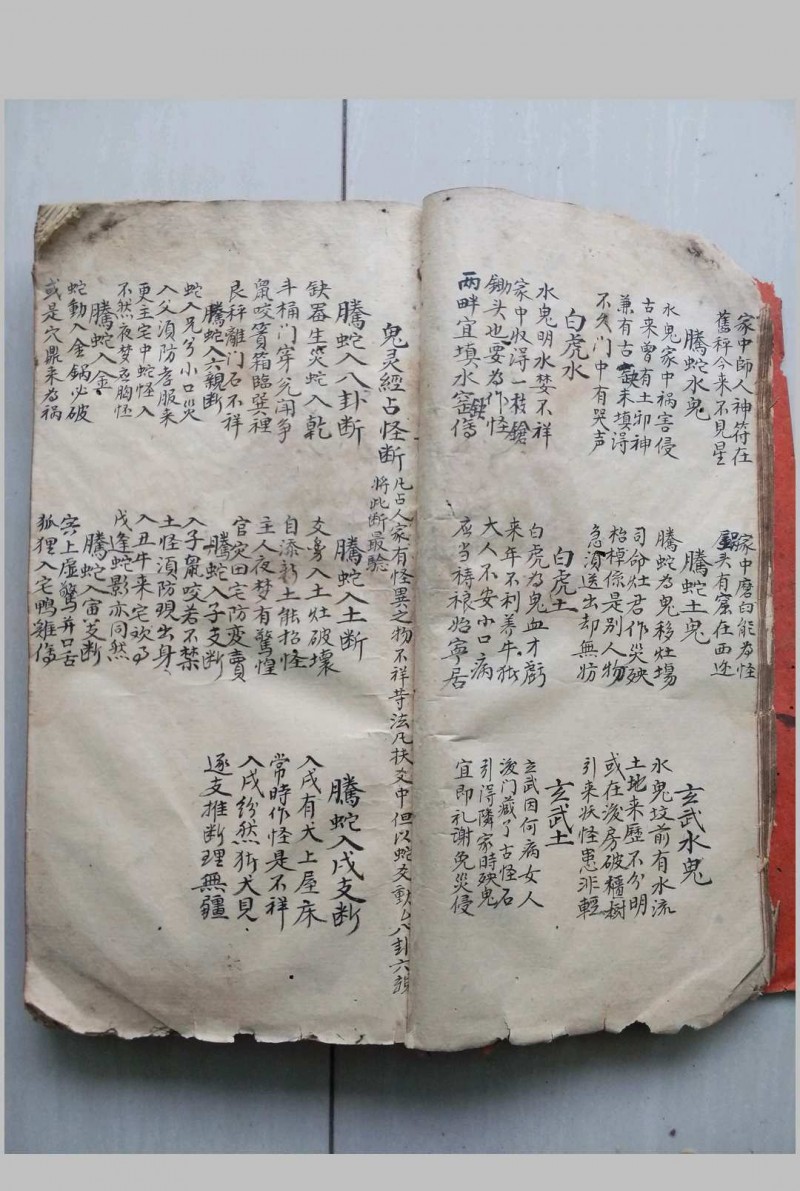 家中師人神符在
舊秤今来不見星
騰蛇水鬼
水鬼家中祸害侵
古来曾有土卯神
兼有古未填得
不久门中有哭声
白虎水
水鬼明水埜不祥
家中収得一枝鎗
鋤头也要為作怪
两畔宜填水窰傷
家中磨臼能为怪
头有窟在西途
騰蛇土鬼
騰蛇为鬼移灶場
司命灶君作災殃
枱槕係是别人物
急須送出却無妨
白虎土
白虎为鬼血才虧
来年不利養牛
大人不安小口病
应当祷禳始寧居
玄武水鬼
水鬼坟前有水流
土地来歷不分明
或在後房破櫃樹
引来妖怪患非輕
玄武土
玄武因何病女人
後门藏了古怪石
引得隣家時殃鬼
宜即礼謝免災侵
鬼灵經占怪断
凡占人家有怪異之物不祥䒭法凡扶爻中但以蛇爻動入八卦六親
将此断最驗
騰蛇入八卦断
缺器生災蛇入乾
斗桶门穿兑闹争
鼠咬箱臨巽裡
艮秤離门石不祥
騰蛇入六親断
蛇入兄爻小口災
入父須防孝服来
更主宅中蛇怪入
不然夜梦鬼胸怀
騰蛇入金
蛇動入金鍋必破
或是穴鼎来为禍
騰蛇入土断
爻㫄入土灶破壞
自添新土能招怪
主人夜梦有驚惶
官灾田宅防变賣
騰蛇入子支断
入子鼠咬若不禁
土怪須防現出身
入丑牛来宅欢
戌逢蛇影亦同然
騰蛇入寅支断
寅上虚驚并口舌
狐狸入宅鴨雞傷
騰蛇入戌支断
入戌有犬上屋床
常時作怪是不祥
入戌纷然犬見
逐支推断理無疆